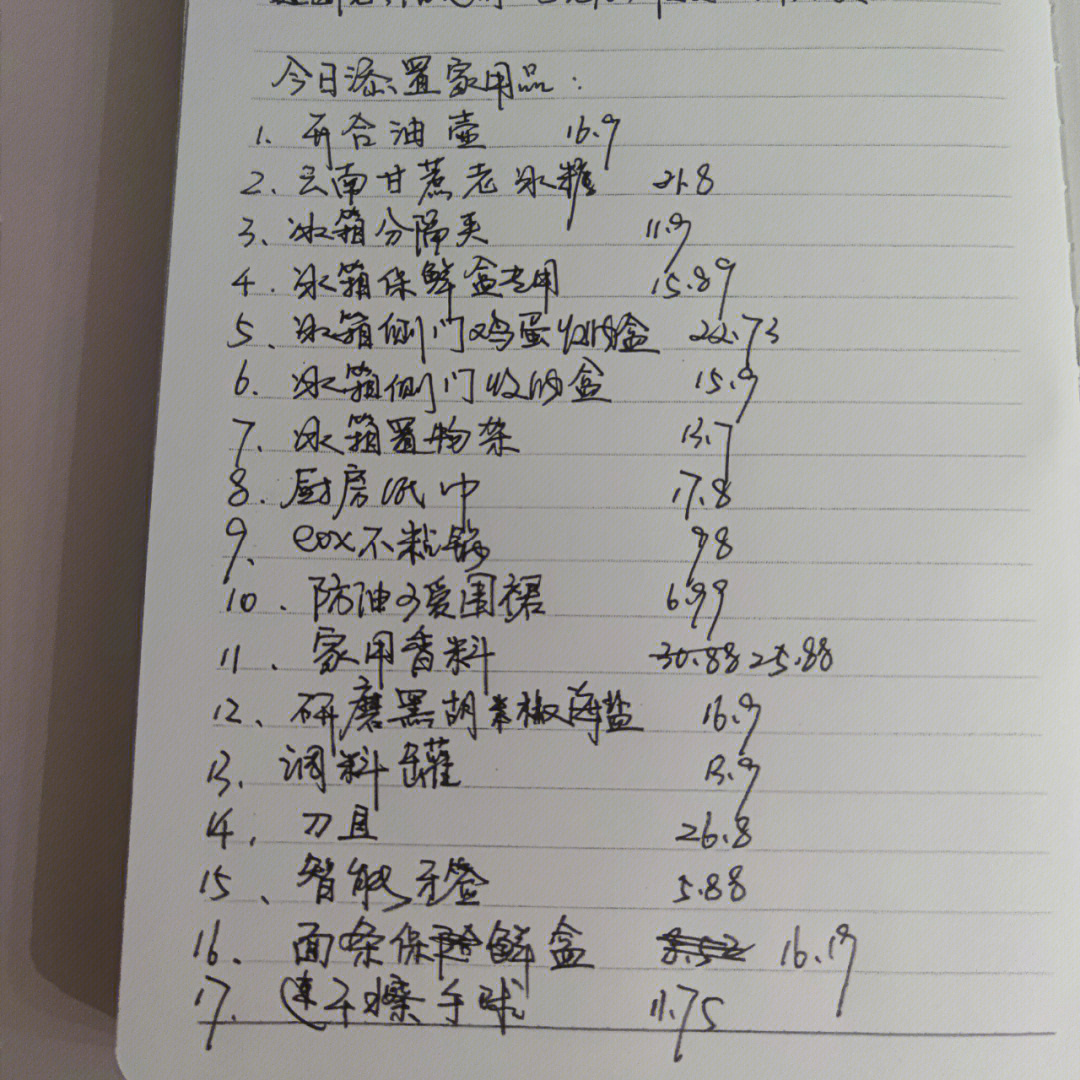 今日添置家用品：
1. 开合油壶 16.9
2、云南甘蔗老冰糖 21.8
3、冰箱分隔夹 11.9
4. 冰箱保鲜盒专用 15.89
5、冰箱侧门鸡蛋收纳盒 22.73
6、冰箱侧门收纳盒 15.9
7、冰箱置物架 13.7
8. 厨房纸巾 17.8
9. eox不粘锅 98
10. 防油可爱围裙 6.99
11. 家用香料 30.88 25.88
12、研磨黑胡椒海盐 16.9
13. 调料罐 13.9
14. 刀具 26.8
15、智能牙签 5.88
16. 面条保鲜盒 16.19
17. 速干擦手球 11.75